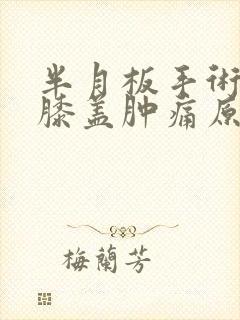 半月板手術
膝盖肿痛原
梅蘭芳